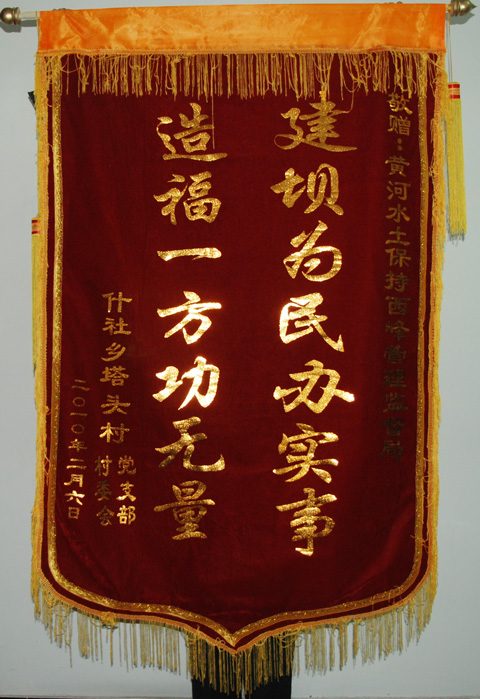 敬赠：黄河水土保持西峰管理监督局
建坝为民办实事
造福一方功无量
什社乡塔头村
党支部
村委会
二〇一〇年二月六日